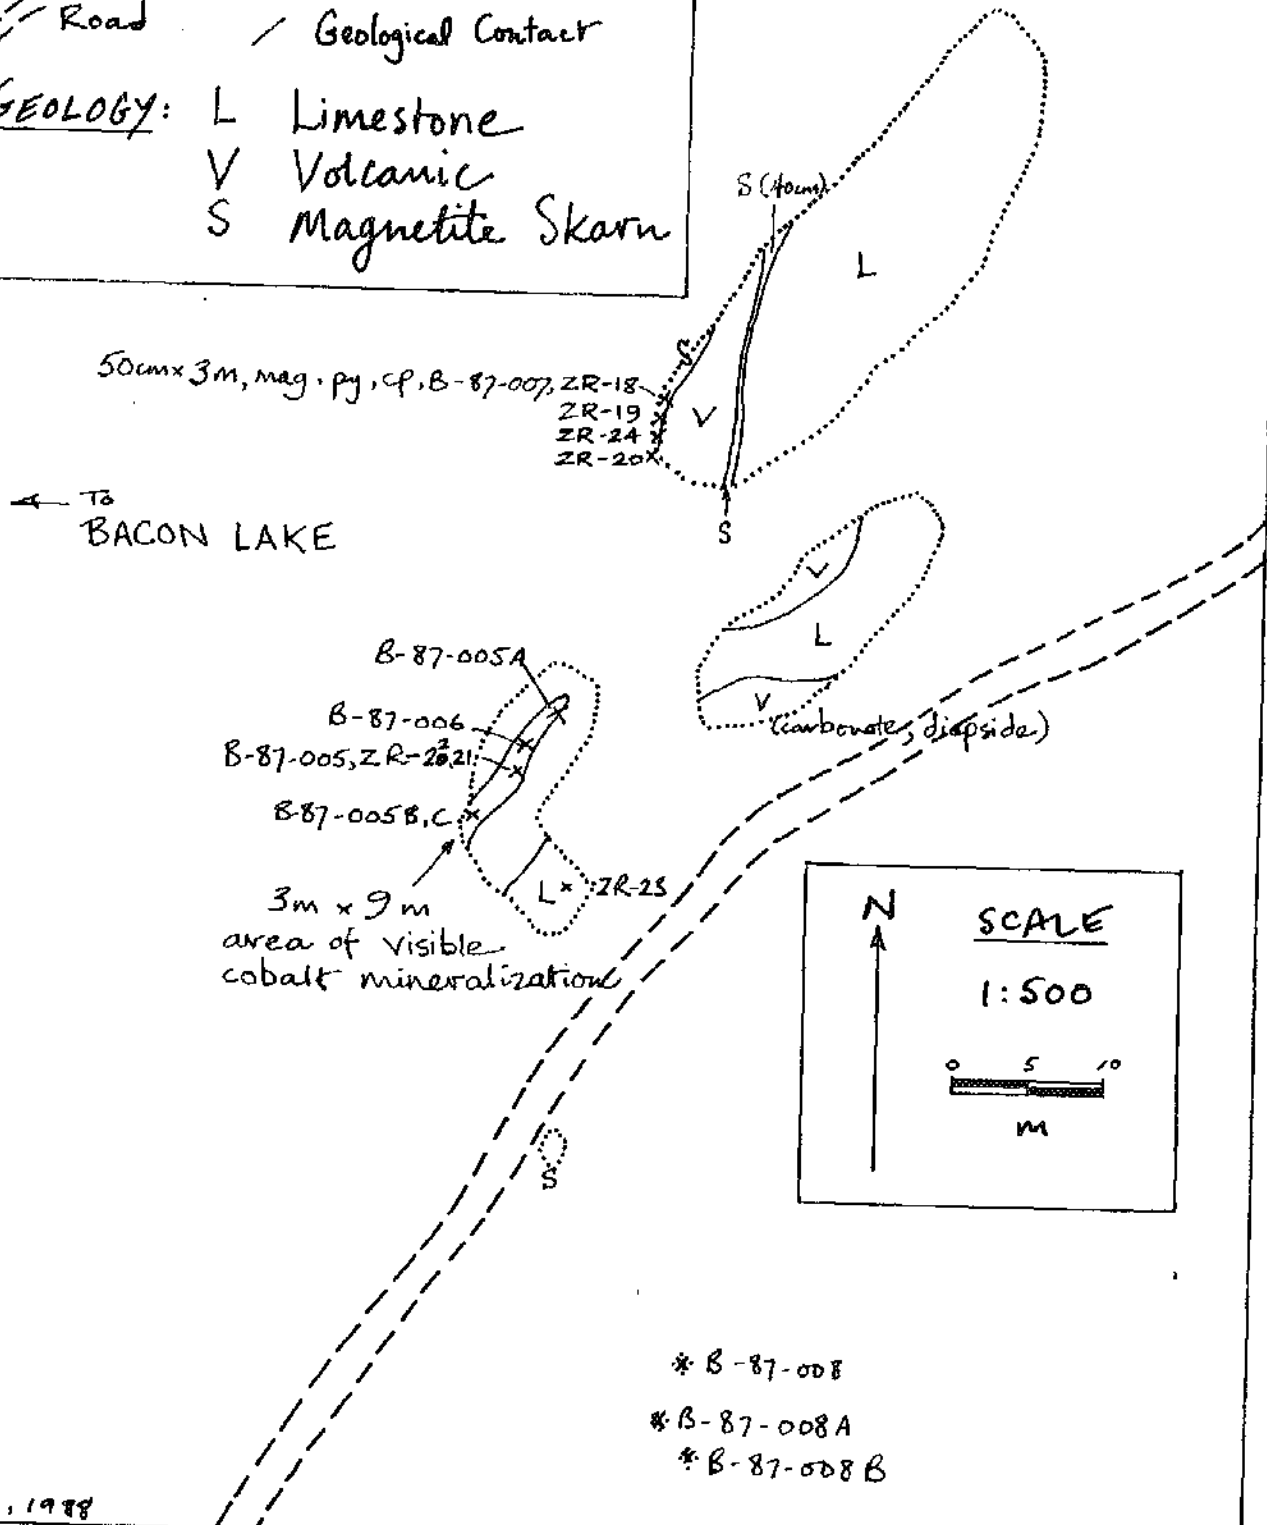 Road / Geological Contact
GEOLOGY: L Limestone
V Volcanic
S Magnetite Skarn
S (40cm)
L
S
50cm x 3m, mag. py, cp, B-87-007, ZR-18
ZR-19
V
ZR-24
ZR-20
To
BACON LAKE
S
V
L
V
(carbonate, diopside)
B-87-005A
B-87-006
B-87-005, ZR-22,21
B-87-005B,C
L ZR-23
3m x 9m
area of visible
cobalt mineralization
N
SCALE
1:500
0 5 10
m
S
B-87-008
B-87-008A
B-87-008B
, 1988